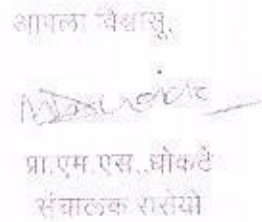 आपला विश्वासू,
प्रा.एम.एस.,धोकटे
संचालक रासेयो